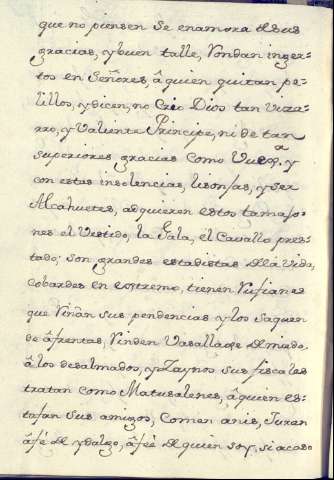 que no piensen se enamora de sus
gracias, y buen talle, Vondan inger-
tos en Señores, â quien quitan pe-
lillos, y dicen, no Crio Dios tan viza-
rro, y Valiente Principe, ni de tan
superiores gracias como Vues.ª y
con estas insolencias, lisonjas, y ser
Alcahuetes, adquieren estos tamajo-
nes el Vestido, la Gala, el Cavallo pres-
tado; son grandes estadistas de la Vida,
cobardes en extremo, tienen Rufianes
que riñan sus pendencias y los saquen
de afrentas, Rinden Vasallage de miedo
â los desalmados, y Zaynos, sus fiscales
tratan como Matusalenes, â quien es-
tafan sus amigos, Comen anis, Juran
â fé de ydalgo, â feé de quien soy, si acaso